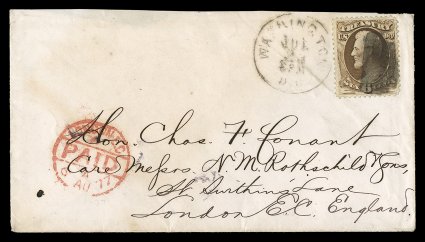 WASHINGTON
JUL
D.C.
TREASURY
U S
PAID
AU 77
Hon. Chas. F. Conant
Care Messrs. N. M. Rothschild & Sons,
St Swithins Lane
London E.C. England.